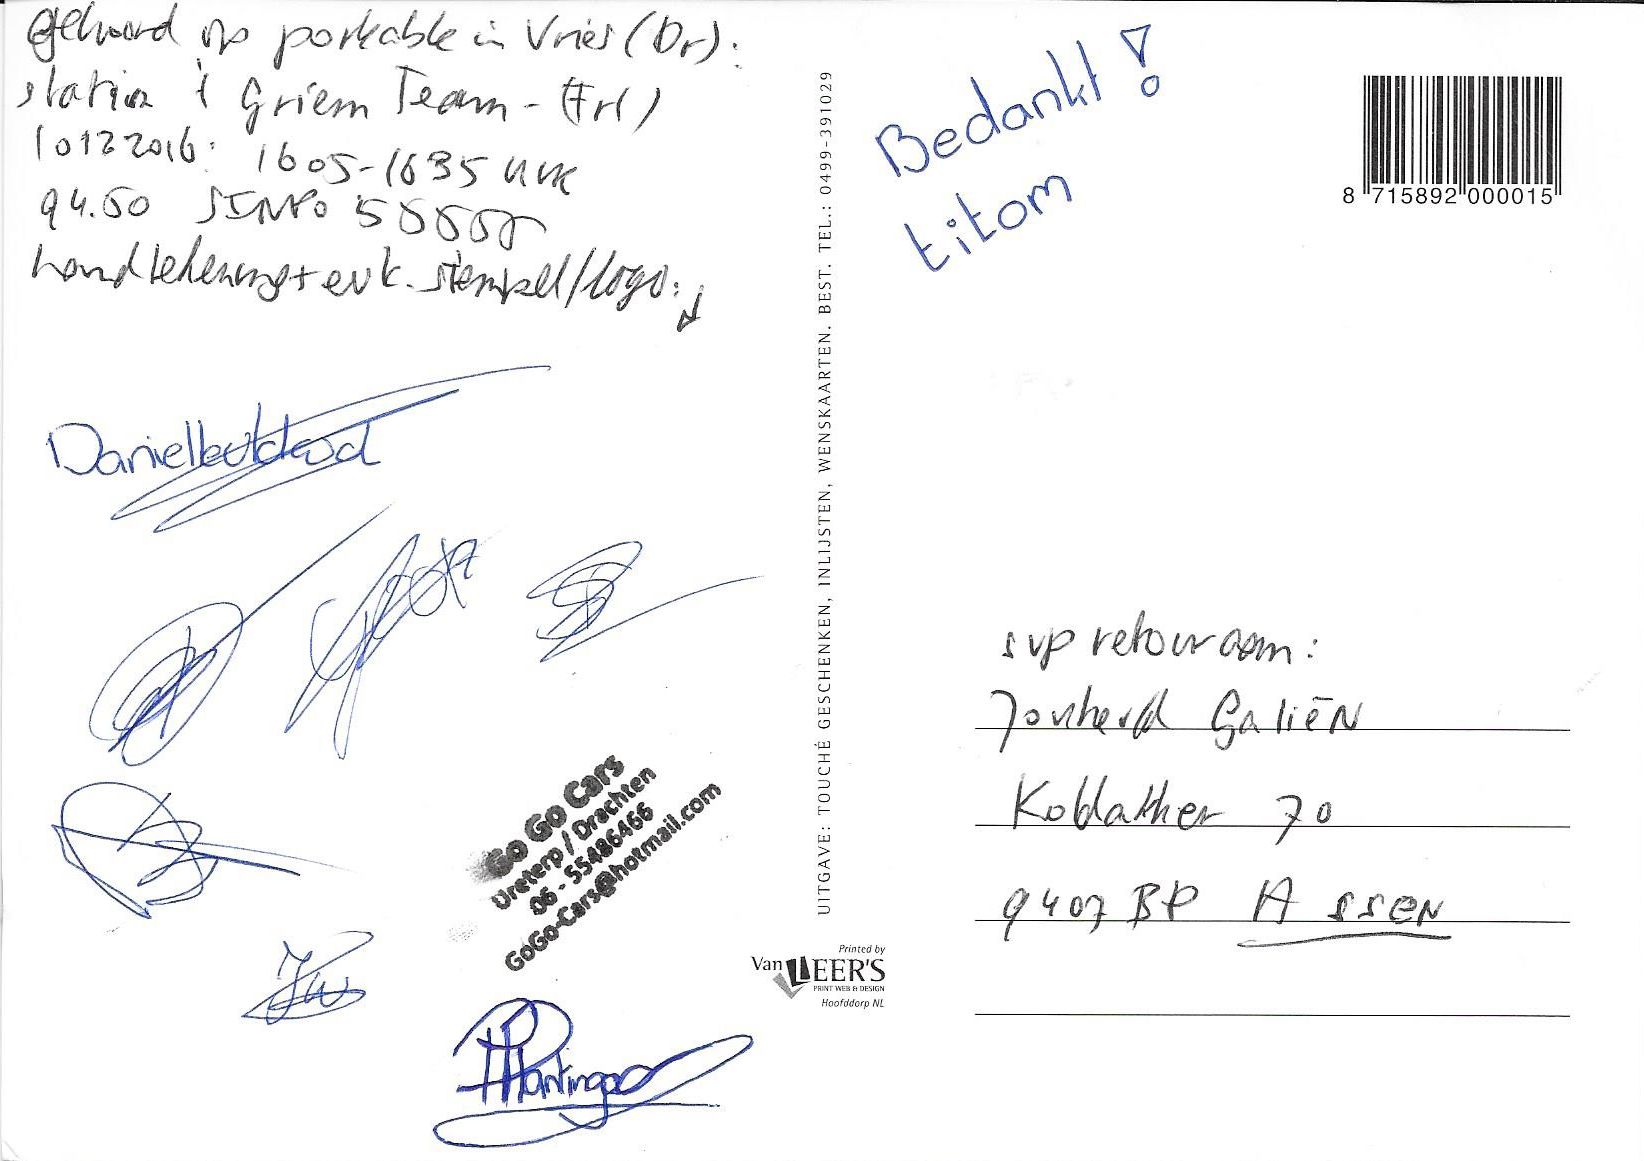 gehoord op portable in Vries (Dr).
station 't Griem Team - (Frl)
10122016: 1605-1635 uur
94.50 SINPO 55555
handtekening + evt. stempel/logo:
Danielle
Hantinga
Go Go Cars
Ureterp / Drachten
06 - 55486466
GoGo-Cars@hotmail.com
UITGAVE: TOUCHÉ GESCHENKEN, INLIJSTEN, WENSKAARTEN. BEST. TEL.: 0499-391029
Printed by
Van LEER'S
PRINT WEB & DESIGN
Hoofddorp NL
Bedankt!
titom
8 715892 000015
svp retour aan:
Jonherd Galiën
70
9407 BP Assen